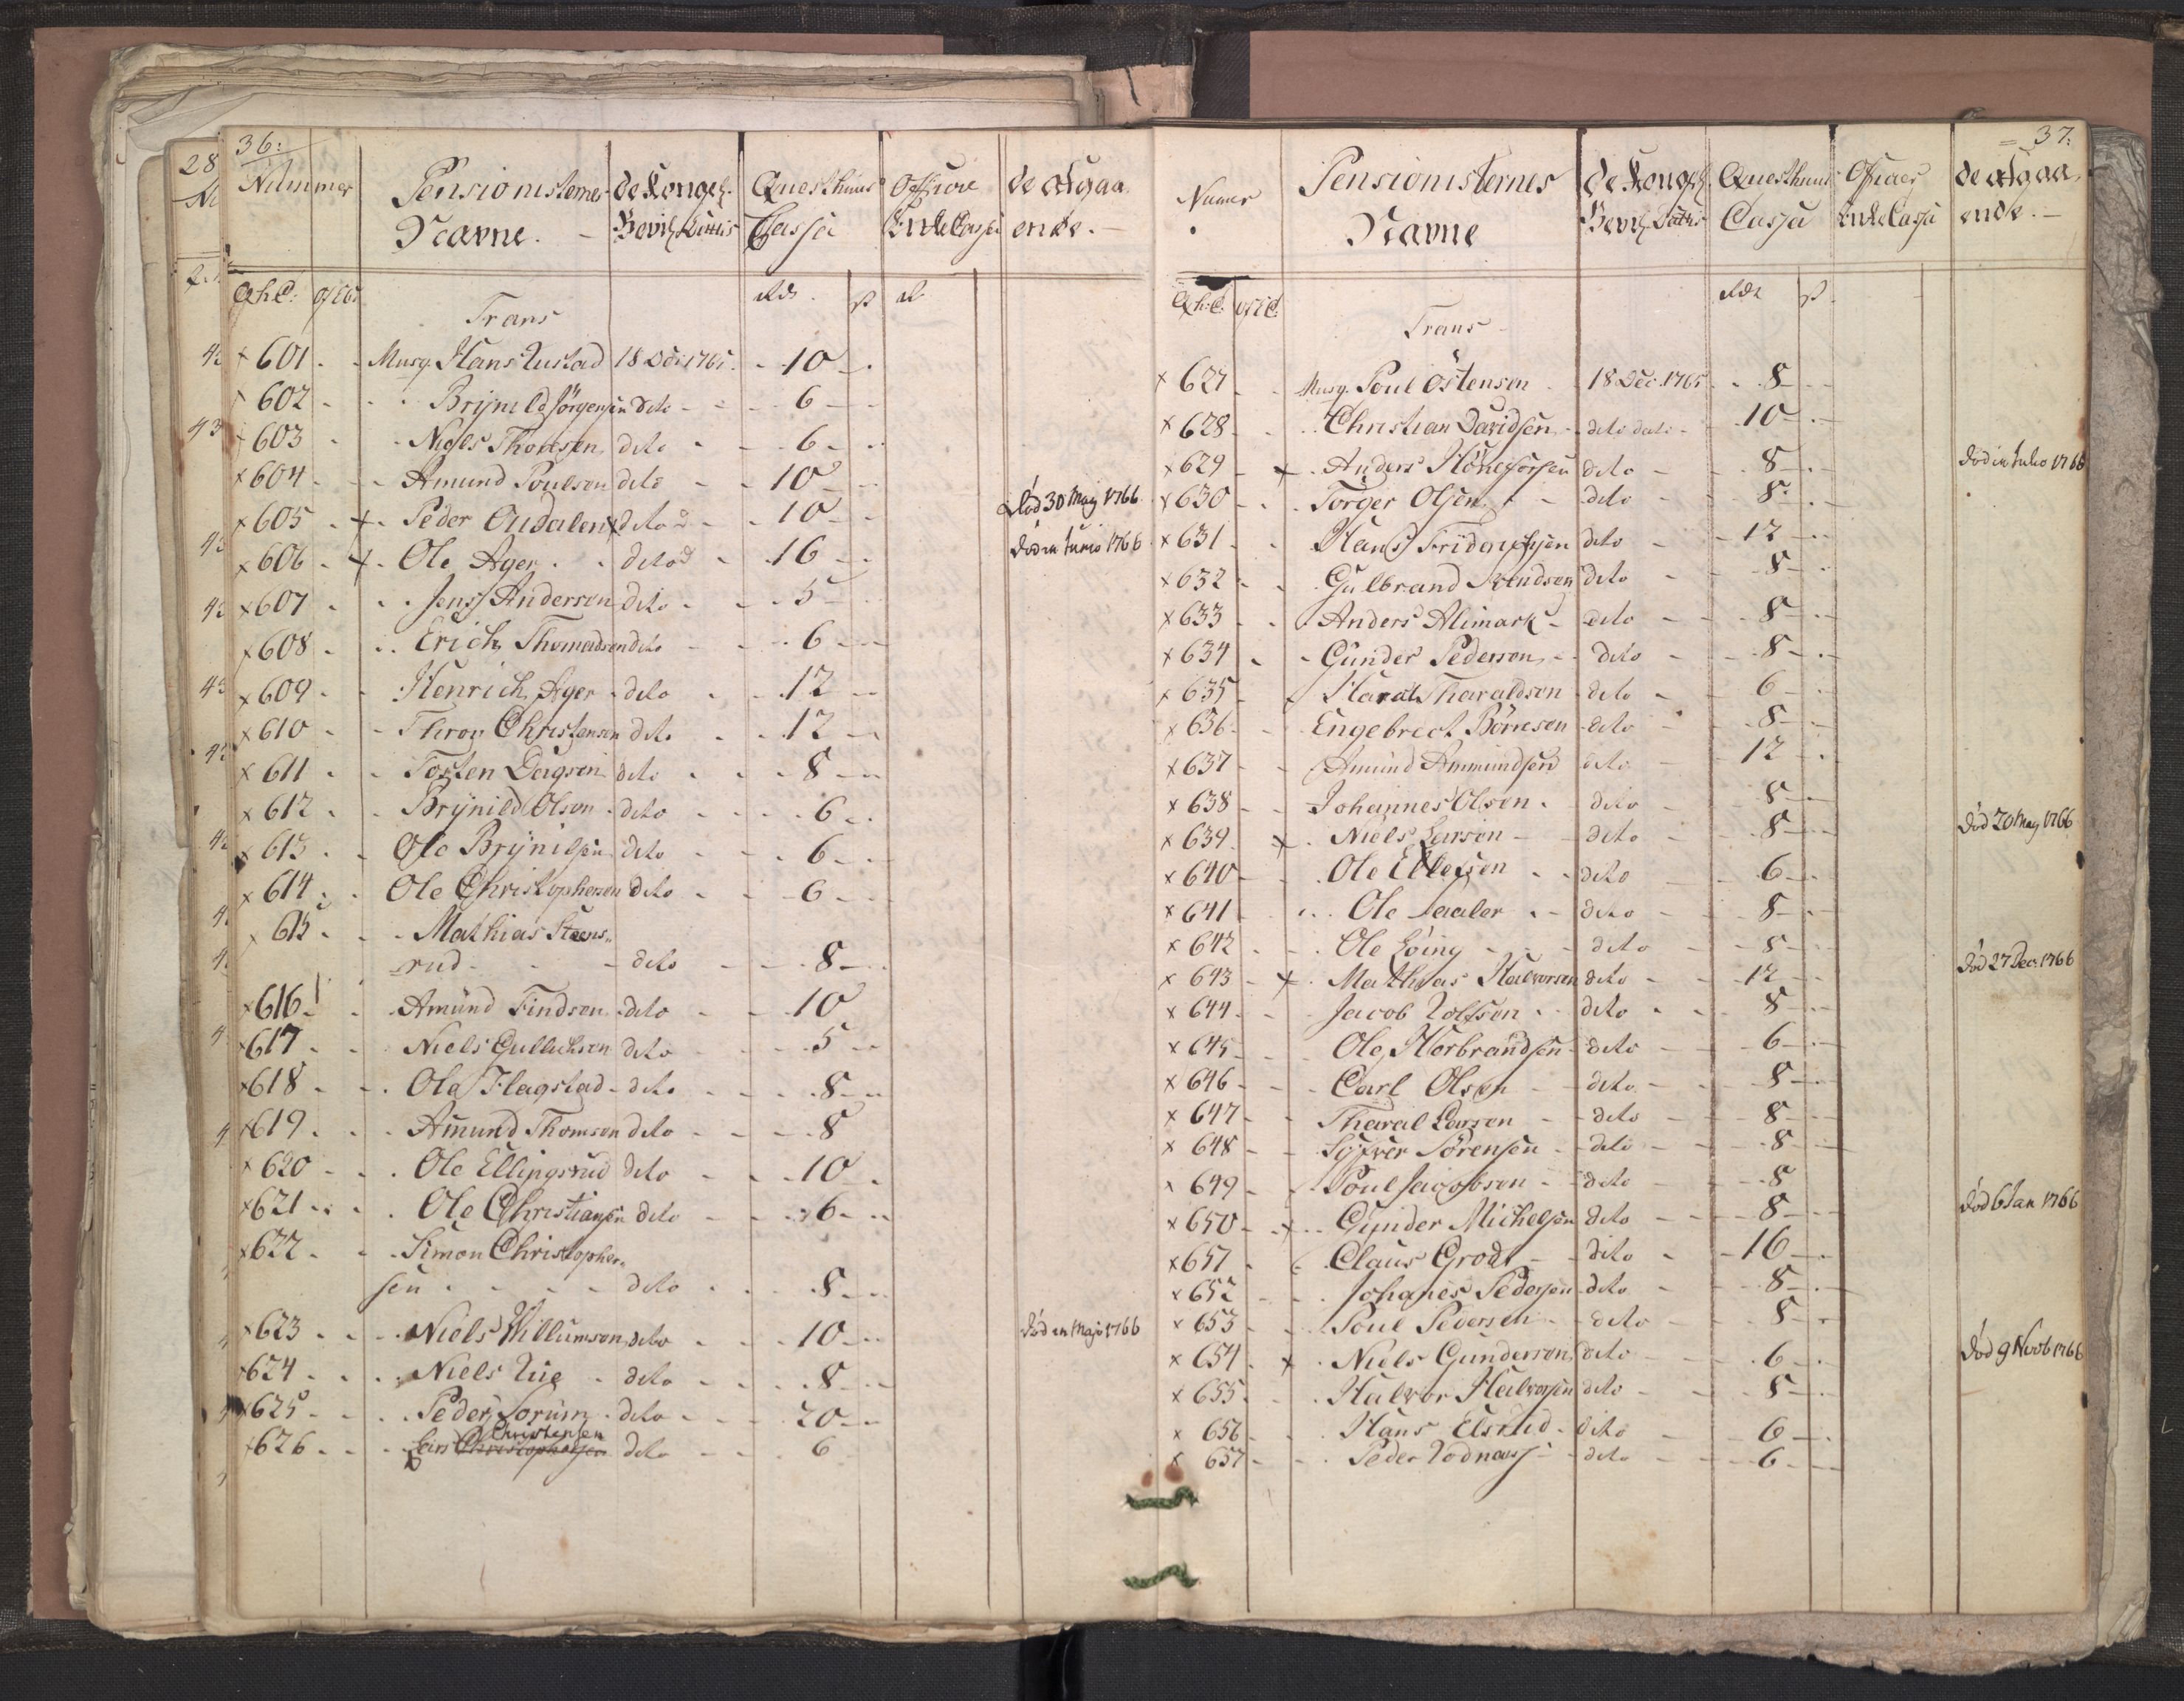 36:
Nummer Pensionisternes de Kongel. Quæsthuus Officeer de afgaa
Navne. Bevilg. Datis Cassa Enke Cassa ende.
QhC: Rd
Trans
× 601 Musq. Hans Rustad 18 Dec: 1765. 10
602 Brÿnild Jörgensen dito 6
603 Niels Thomsen dito 6
× 604 Amund Poulsen dito 10
× 605 × Peder Oudalen dito 10 död 30 Maÿ 1766
× 606 × Ole Ager dito 16 död in Junio 1766
× 607 Jens Andersen dito 5
× 608 Erich Thomedsen dito 6
× 609 Henrich Ager dito 12
× 610 Thron Christensen dito 12
× 611 Tosten Dagsen dito 8
× 612 Brÿnild Olsen dito 6
× 613 Ole Brÿnilsen dito 6
× 614 Ole Christophersen dito 6
× 615 Mathias Steens-
rud dito 8
× 616 Amund Findsen dito 10
× 617 Niels Gullichsen dito 5
× 618 Ole Flagstad dito 8
× 619 Amund Thomsen dito 8
× 620 Ole Ellingsrud dito 10
× 621 Ole Christiansen dito 6
× 622 Simon Christopher-
sen dito 8
× 623 Niels Willumsen dito 10 död in Majo 1766
× 624 Niels Lie dito 8
× 625 Peder Sorum dito 20
Christensen
× 626 Lars Christophersen dito 6
37.
Numer Pensionisternes de Kongel. Quæsthuus Officeer de afgaa
Navne Bevilg. Datis Cassa Enke Cassa ende.
Qh:C: Rdr
Trans
× 627 Musq. Poul Östensen 18 Dec. 1765 8
× 628 Christian Davidsen dito dato 10
× 629 × Anders Hönefossen dito 8 död in Julio 1766
× 630 Torger Olsen dito 8
× 631 Hans Friderichsen dito 12
× 632 Gulbrand Svendsen dito 8
× 633 Anders Alimark dito 8
× 634 Gunder Pedersen dito 8
× 635 Haral Tharaldsen dito 6
× 636 Engebrect Börresen dito 8
× 637 Amund Ammundsen dito 12
× 638 Johannes Olsen dito 8
× 639 × Niels Larsen dito 8 död 20 Maÿ 1766
× 640 Ole Ellefsen dito 6
× 641 Ole Aaler dito 8
× 642 Ole Löing dito 8
× 643 × Mathias Halvorsen dito 12 död 27 Dec. 1766
× 644 Jacob Rolfsen dito 8
× 645 Ole Herbrandsen dito 6
× 646 Carl Olsen dito 8
× 647 Tharal Larsen dito 8
× 648 Syfver Sörensen dito 8
× 649 Poul Jacobsen dito 8
× 650 × Gunder Michelsen dito 8 död 6 Jan 1766
× 651 Claus Grode dito 16
× 652 Johanes Pedersen dito 8
× 653 Poul Pedersen dito 8
× 654 × Niels Gundersen dito 6 död 9 Novb 1766
× 655 Halvor Halvorsen dito 8
× 656 Hans Elsrud dito 6
× 657 Peder Rodnæss dito 6